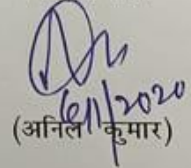 6/11/2020
(अनिल कुमार)